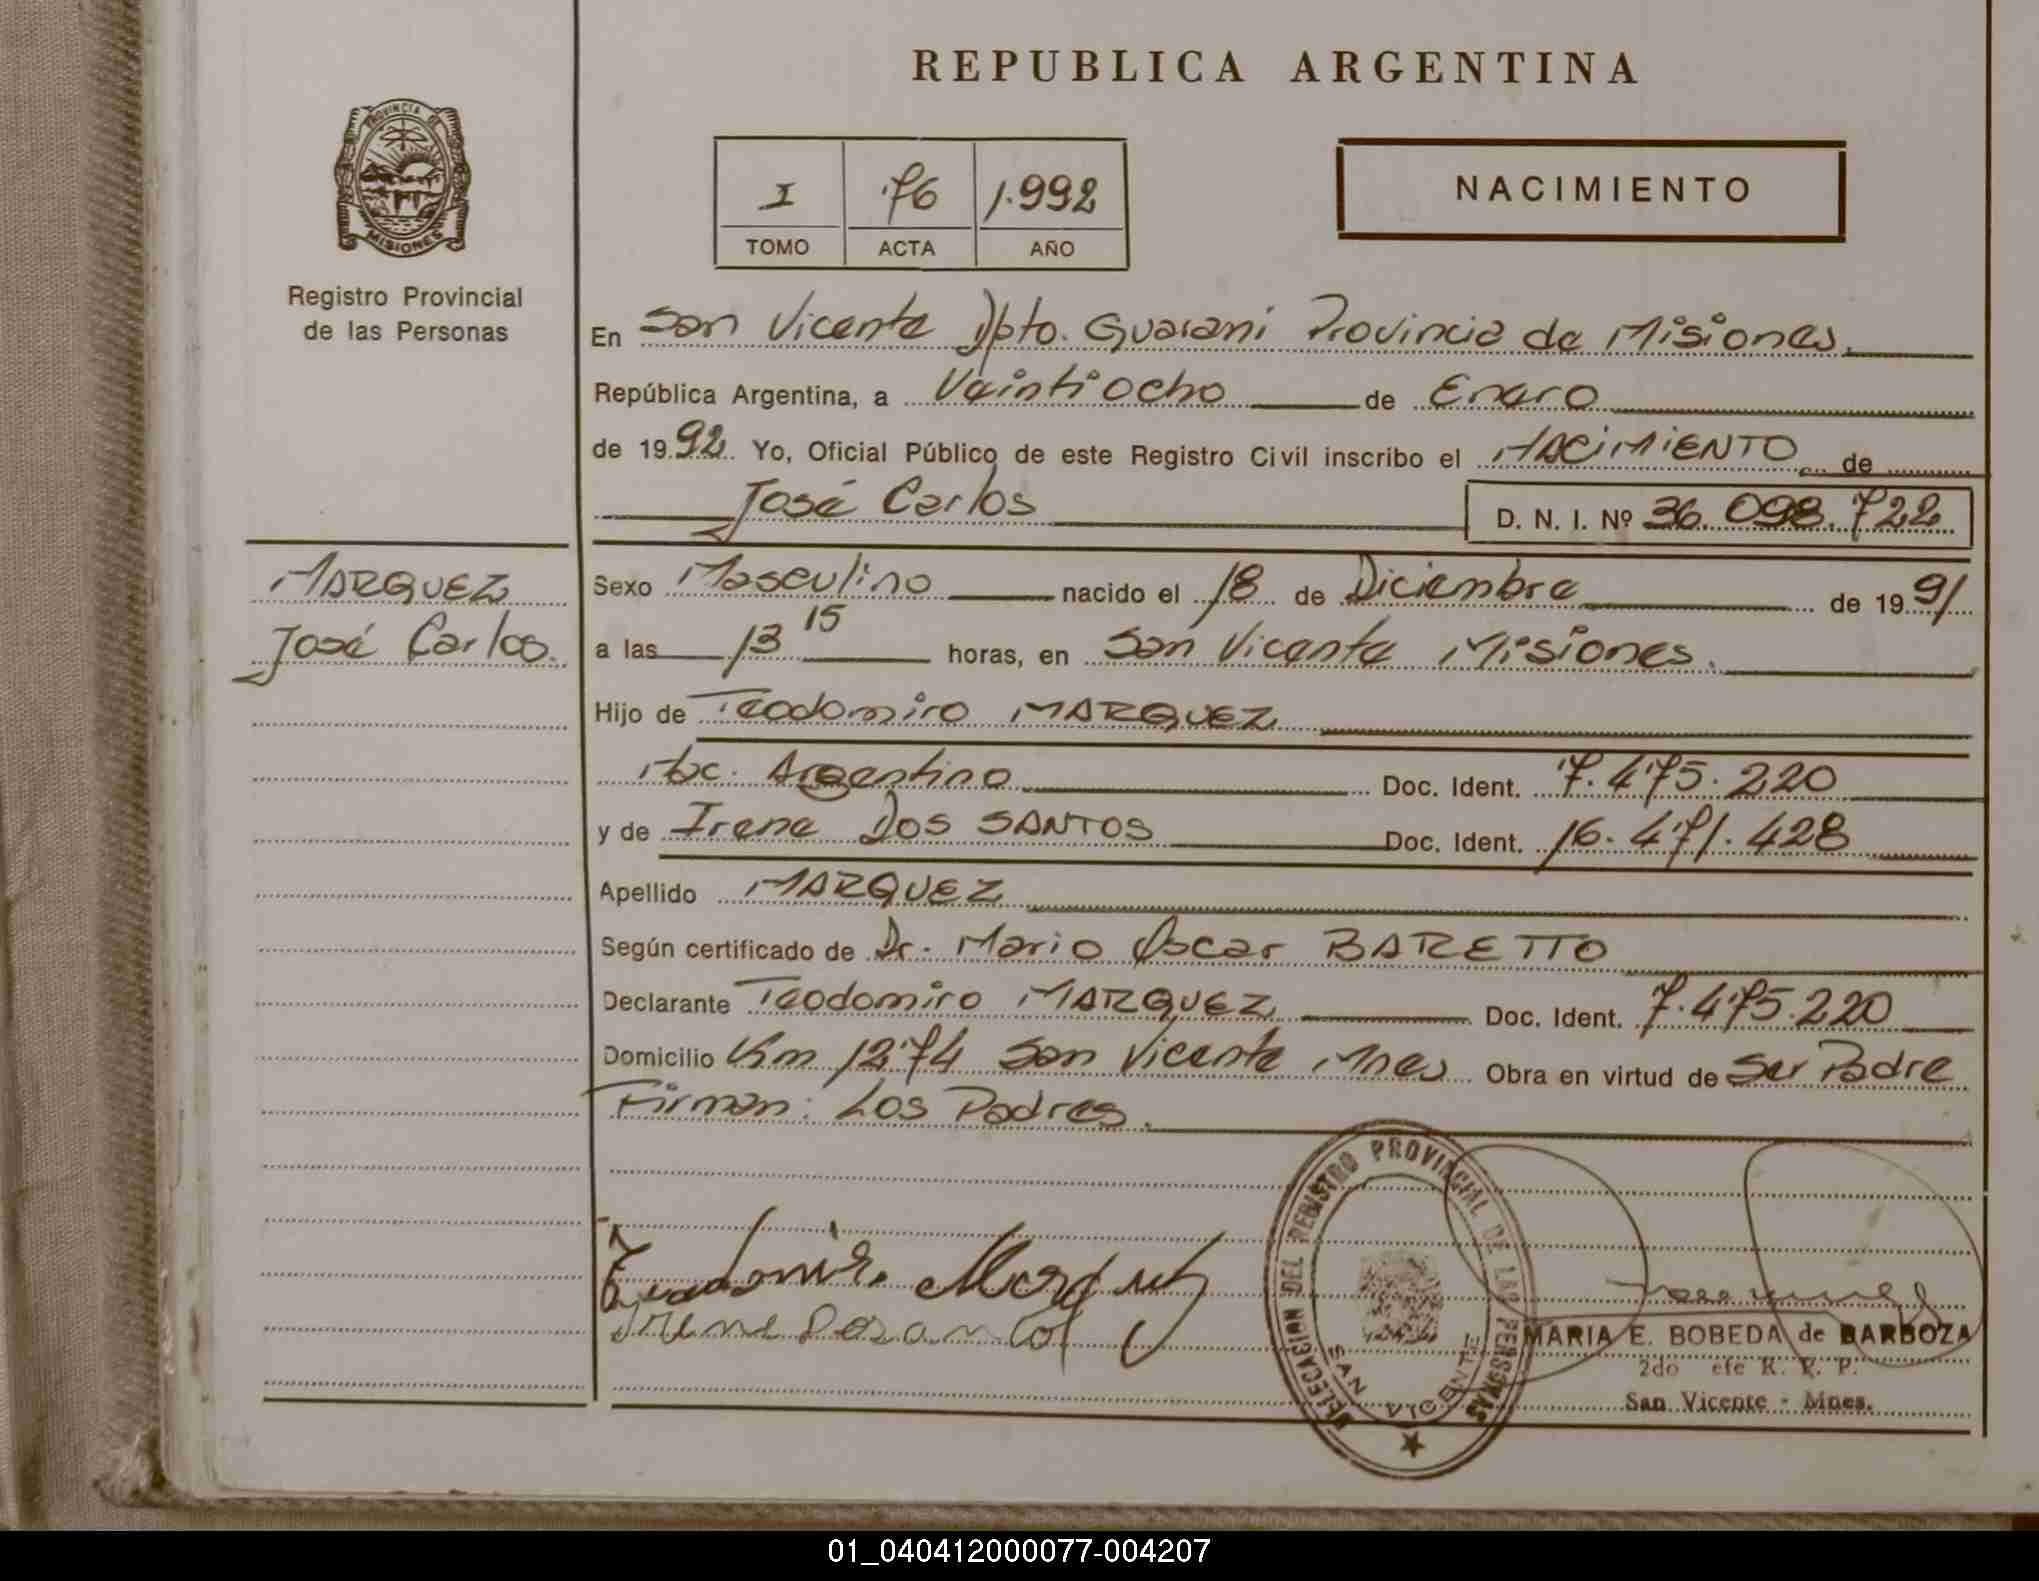 REPUBLICA ARGENTINA
PROVINCIA DE
MISIONES
Registro Provincial
de las Personas
I 76 1.992
TOMO ACTA AÑO
NACIMIENTO
En San Vicente Dpto. Guaraní Provincia de Misiones.
República Argentina, a Veintiocho de Enero
de 1992. Yo, Oficial Público de este Registro Civil inscribo el NACIMIENTO de
José Carlos D. N. I. Nº 36.098.722
MARQUEZ
José Carlos.
Sexo Masculino nacido el 18 de Diciembre de 1991
a las 13 15 horas, en San Vicente Misiones.
Hijo de Teodomiro MARQUEZ
Nac. Argentino Doc. Ident. 7.475.220
y de Irene DOS SANTOS Doc. Ident. 16.471.428
Apellido MARQUEZ
Según certificado de Dr. Mario Oscar BARETTO
Declarante Teodomiro MARQUEZ Doc. Ident. 7.475.220
Domicilio Km 1274 San Vicente Mnes Obra en virtud de Ser Padre
Firman: Los Padres.
DELEGACION DEL REGISTRO PROVINCIAL DE LAS PERSONAS
SAN VICENTE
MARIA E. BOBEDA de BARBOZA
2do efe R. P. P.
San Vicente - Mnes.
01_040412000077-004207